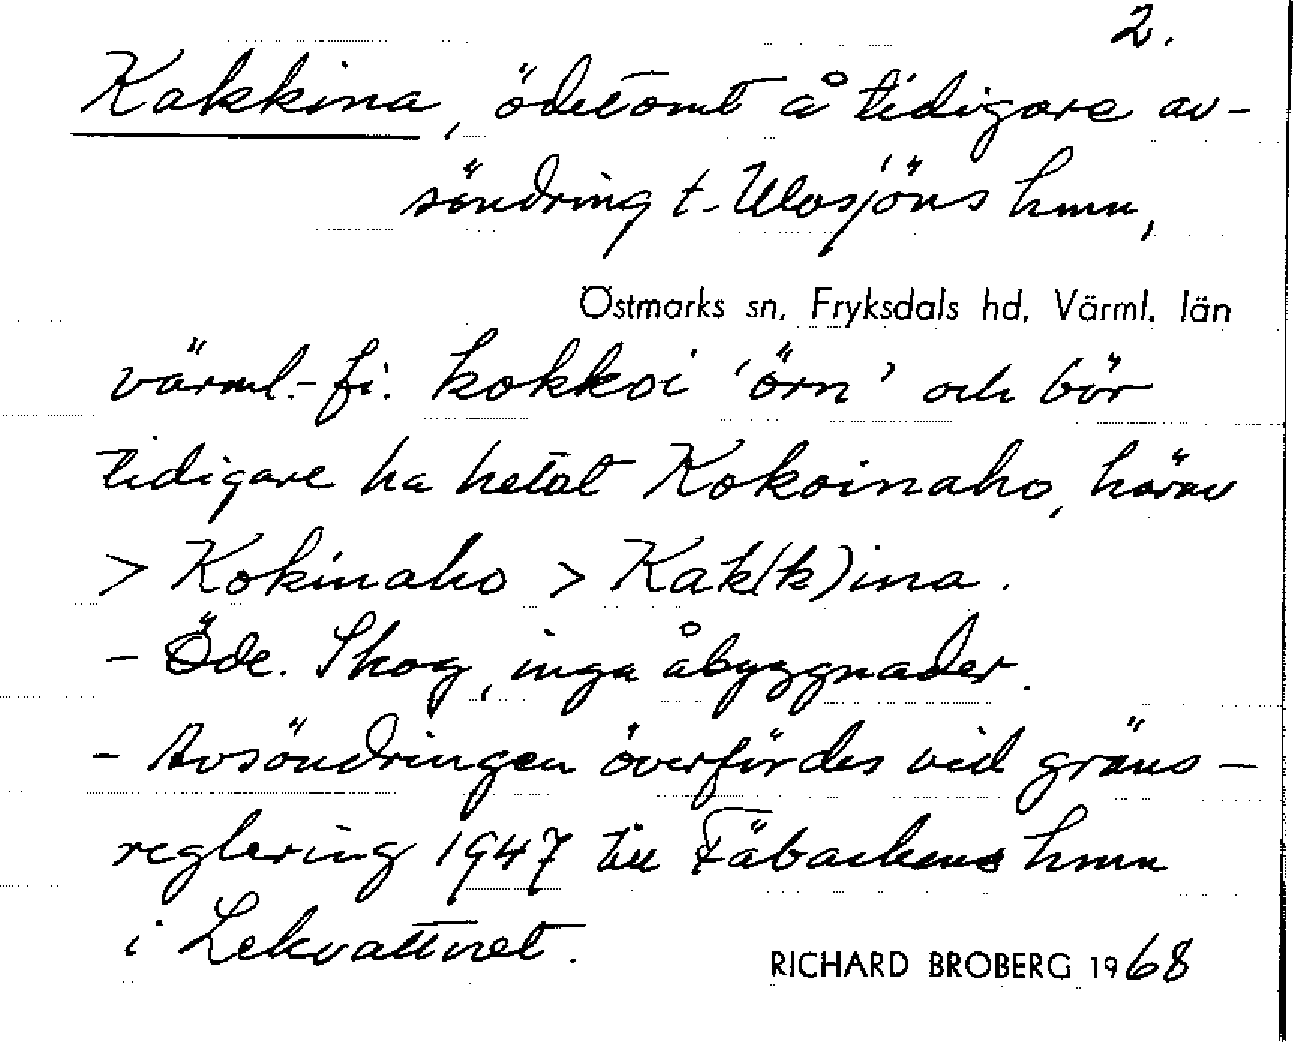 2.
Kakkina, ödetomt å tidigare av-
söndring t. Ulvsjöns hmn,
Östmarks sn, Fryksdals hd, Värml. län
värml.-fi. kokkoi 'örn' och bör
tidigare ha hetat Kokoinaho, härav
> Kokinaho > Kak(k)ina.
- Öde. Skog, inga åbyggnader.
- Avsöndringen överfördes vid gräns-
reglering 1947 till Fäbackens hmn
i Lekvattnet.
RICHARD BROBERG 1968